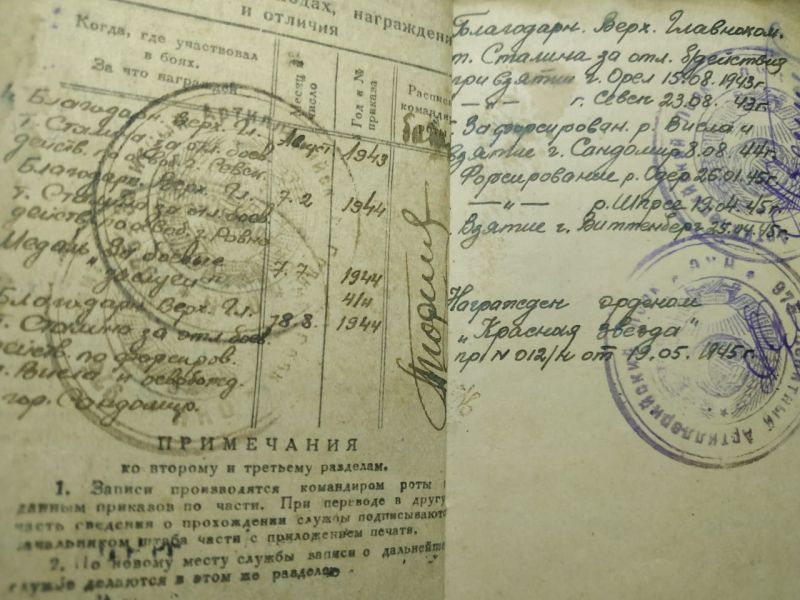 одах, награждени
и отличия
Когда, где участвовал
в боях.
За что награжден
Месяц и
число
Год и №
приказа
Распис
команди
Благодарн. Верх. Гл.
т. Сталина за отл. боев.
действ. по освоб. г. Севск.
Август
1943
Благодарн. Верх. Гл.
т. Сталина за отл. боев
действ. по освоб. г. Ровно
7.2
1944
Медаль „За боевые
заслуги“
7.7.
1944
41/н
Благодарн. Верх. Гл.
т. Сталина за отл. боев.
действ. по форсиров.
р. Висла и освобожд.
гор. Сандомир.
8.8.
1944
ПРИМЕЧАНИЯ
ко второму и третьему разделам.
1. Записи производятся командиром роты
данным приказов по части. При переводе в другу
часть сведения о прохождении службы подписывают
начальником штаба части с приложением печати.
2. По новому месту службы записи о дальнейше
службе делаются в этом же разделе.
Благодарн. Верх. Главноком.
т. Сталина за отл. б/действия
при взятии г. Орел 15.08.1943г.
—„— г. Севск 23.08. 43г.
За форсирован. р. Висла и
взятие г. Сандомир 8.08.44г.
Форсирование р. Одер 26.01.45г.
—„— р. Шпрее 19.04.45г.
Взятие г. Виттенберг 25.04.45г.
Награжден орденом
„Красная звезда“
пр N 012/н от 19.05.1945г.